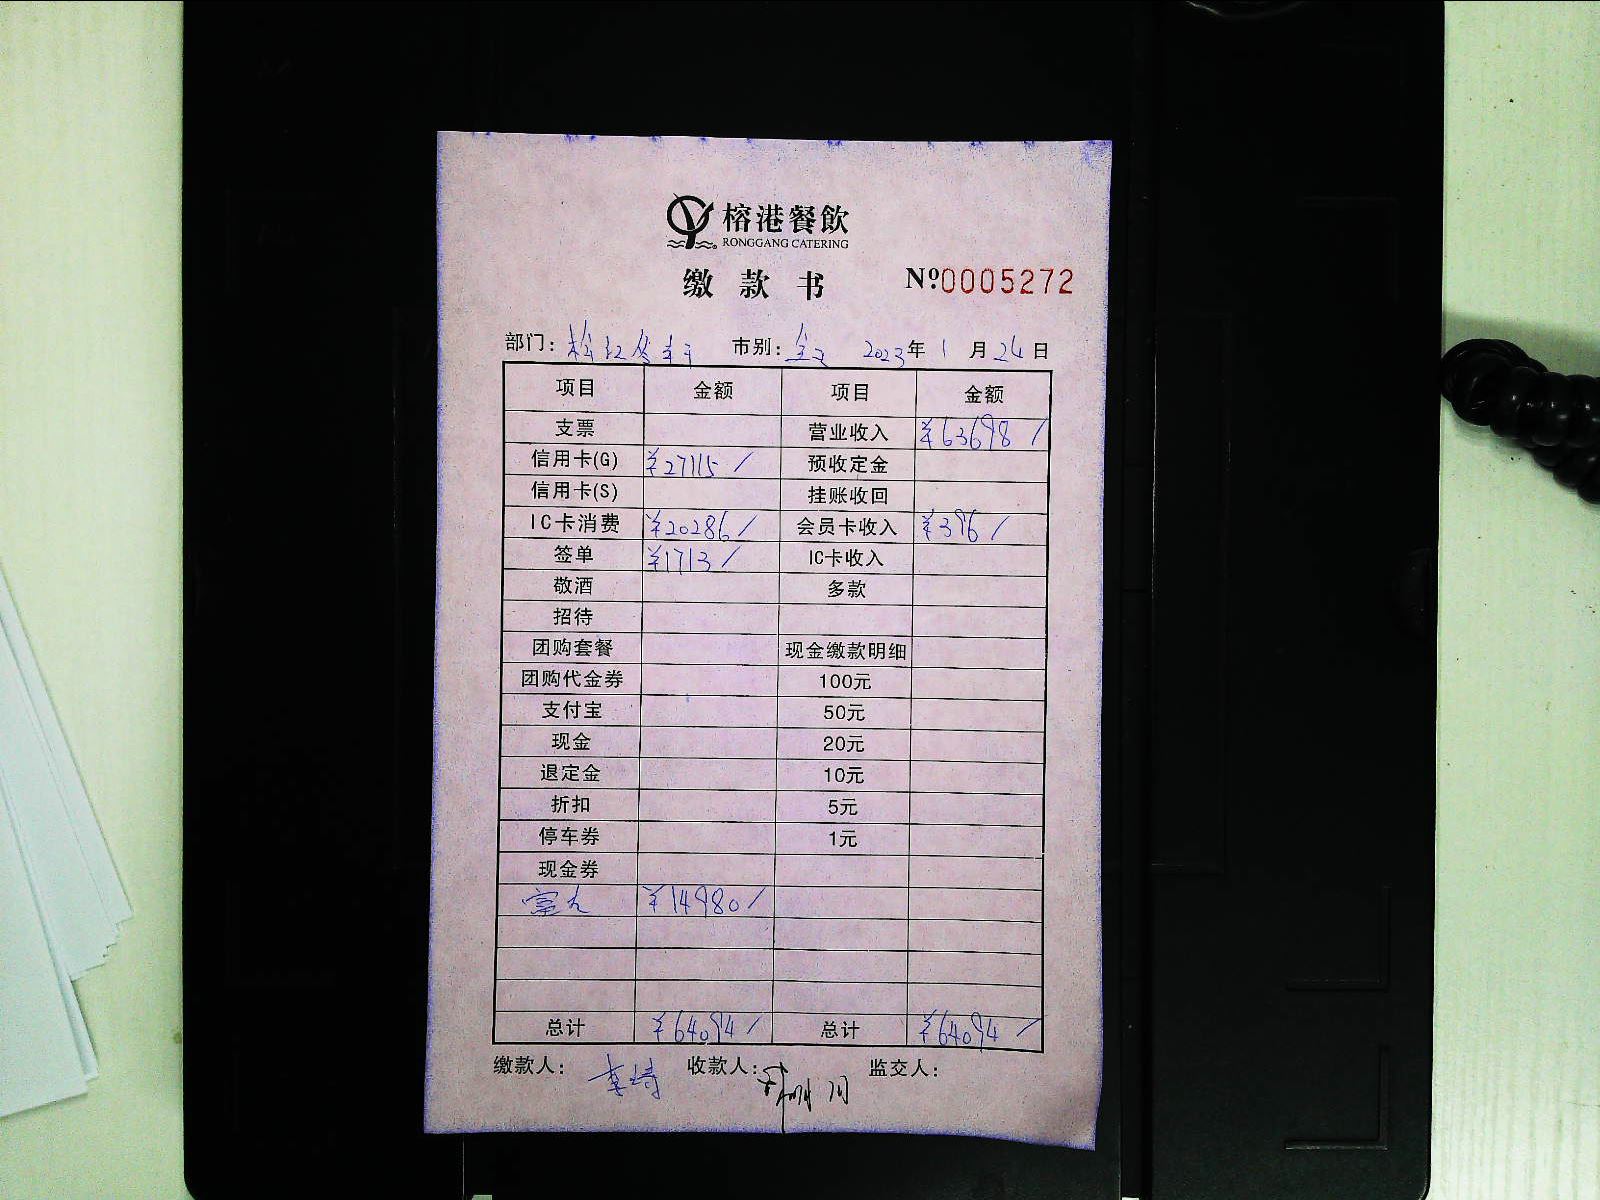 榕港餐飲
RONGGANG CATERING
缴款书 Nº0005272
部门: 市别: 全天 2023年1月24日
项目 金额 项目 金额
支票 营业收入 ¥63698/
信用卡(G) ¥27115/ 预收定金
信用卡(S) 挂账收回
IC卡消费 ¥20286/ 会员卡收入 ¥396/
签单 ¥1713/ IC卡收入
敬酒 多款
招待
团购套餐 现金缴款明细
团购代金券 100元
支付宝 50元
现金 20元
退定金 10元
折扣 5元
停车券 1元
现金券
¥14980/
总计 ¥64094/ 总计 ¥64094/
缴款人: 李琦 收款人: 监交人: